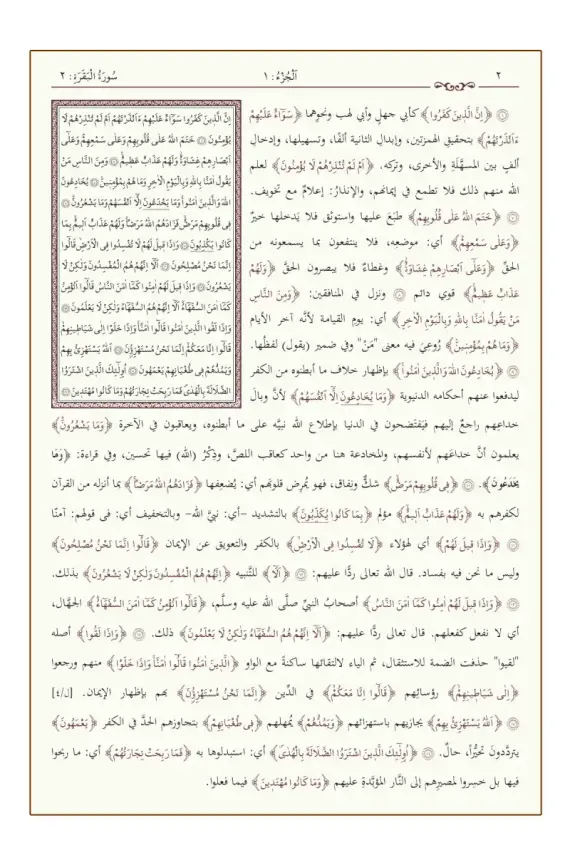 ٢ اَلْجُزْءُ: ١ سُورَةُ الْبَقَرَةِ: ٢
﴿إِنَّ الَّذِينَ كَفَرُوا﴾ كأبي جهلٍ وأبي لهب ونحوِهما ﴿سَوَآءٌ عَلَيْهِمْ
ءَاَنْذَرْتَهُمْ﴾ بتحقيق الهمزتين، وإبدال الثانية ألفًا، وتسهيلها، وإدخالِ
ألفٍ بين المسهَّلة والأخرى، وتركه. ﴿اَمْ لَمْ تُنْذِرْهُمْ لَا يُؤْمِنُونَ﴾ لعلم
الله منهم ذلك فلا تطمع في إيمانهم، والإنذارُ: إعلامٌ مع تخويف.
﴿خَتَمَ اللهُ عَلٰى قُلُوبِهِمْ﴾ طبَعَ عليها واستوثَق فلا يَدخلها خيرٌ
﴿وَعَلٰى سَمْعِهِمْ﴾ أي: موضعه، فلا ينتفعون بما يسمعونه من
الحقِّ ﴿وَعَلٰٓى اَبْصَارِهِمْ غِشَاوَةٌ﴾ وغطاءٌ فلا يبصرون الحقَّ ﴿وَلَهُمْ
عَذَابٌ عَظِيمٌ﴾ قوي دائم ونزل في المنافقين: ﴿وَمِنَ النَّاسِ
مَنْ يَقُولُ اٰمَنَّا بِاللهِ وَبِالْيَوْمِ الْاٰخِرِ﴾ أي: يومِ القيامة لأنَّه آخر الأيام
﴿وَمَا هُمْ بِمُؤْمِنِينَ﴾ رُوعِيَ فيه معنى "مَنْ" وفي ضمير (يقول) لفظُها.
﴿يُخَادِعُونَ اللهَ وَالَّذِينَ اٰمَنُوا﴾ بإظهار خلاف ما أبطنوه من الكفر
ليدفعوا عنهم أحكامه الدنيوية ﴿وَمَا يُخَادِعُونَ اِلَّآ اَنْفُسَهُمْ﴾ لأنَّ وبالَ
خداعِهم راجعٌ إليهم فيَفتَضحون في الدنيا بإطلاع الله نبيَّه على ما أبطنوه، ويعاقبون في الآخرة ﴿وَمَا يَشْعُرُونَ﴾
يعلمون أنَّ خداعَهم لأنفسهم، والمخادعة هنا من واحد كعاقب اللصَّ، وذِكْرُ (الله) فيها تحسين، وفي قراءة: ﴿وَمَا
يَخْدَعُونَ﴾. ﴿فِى قُلُوبِهِمْ مَرَضٌ﴾ شكٌّ ونِفاق، فهو يُمرِض قلوبَهم أي: يُضعِفها ﴿فَزَادَهُمُ اللهُ مَرَضًا﴾ بما أنزله من القرآن
لكفرهم به ﴿وَلَهُمْ عَذَابٌ اَلِيمٌ﴾ مؤلم ﴿بِمَا كَانُوا يُكَذِّبُونَ﴾ بالتشديد -أي: نبيَّ الله- وبالتخفيف أي: في قولهم: آمنّا
﴿وَاِذَا قِيلَ لَهُمْ﴾ أي لهؤلاء ﴿لَا تُفْسِدُوا فِى الْاَرْضِ﴾ بالكفر والتعويق عن الإيمان ﴿قَالُٓوا اِنَّمَا نَحْنُ مُصْلِحُونَ﴾
وليس ما نحن فيه بفساد. قال الله تعالى ردًّا عليهم: ﴿اَلَآ﴾ للتَّنبيه ﴿اِنَّهُمْ هُمُ الْمُفْسِدُونَ وَلٰكِنْ لَا يَشْعُرُونَ﴾ بذلك.
﴿وَاِذَا قِيلَ لَهُمْ اٰمِنُوا كَمَآ اٰمَنَ النَّاسُ﴾ أصحابُ النبيِّ صلَّى الله عليه وسلَّم، ﴿قَالُٓوا اَنُؤْمِنُ كَمَآ اٰمَنَ السُّفَهَآءُ﴾ الجهَّال،
أي لا نفعل كفعلهم. قال تعالى ردًّا عليهم: ﴿اَلَآ اِنَّهُمْ هُمُ السُّفَهَآءُ وَلٰكِنْ لَا يَعْلَمُونَ﴾ ذلك. ﴿وَاِذَا لَقُوا﴾ أصله
"لقيوا" حذفت الضمة للاستثقال، ثم الياء لالتقائها ساكنةً مع الواو ﴿الَّذِينَ اٰمَنُوا قَالُٓوا اٰمَنَّا وَاِذَا خَلَوْا﴾ منهم ورجعوا
﴿اِلٰى شَيَاطِينِهِمْ﴾ رؤسائِهم ﴿قَالُٓوا اِنَّا مَعَكُمْ﴾ في الدِّين ﴿اِنَّمَا نَحْنُ مُسْتَهْزِؤُنَ﴾ بهم بإظهار الإيمان. [ل/٤]
﴿اَللهُ يَسْتَهْزِئُ بِهِمْ﴾ يجازيهم باستهزائهم ﴿وَيَمُدُّهُمْ﴾ يُمهلهم ﴿فِى طُغْيَانِهِمْ﴾ بتجاوزهم الحدَّ في الكفر ﴿يَعْمَهُونَ﴾
يتردَّدونَ تحيُّراً، حالٌ. ﴿اُولٰٓئِكَ الَّذِينَ اشْتَرَوُا الضَّلَالَةَ بِالْهُدٰى﴾ أي: استبدلوها به ﴿فَمَا رَبِحَتْ تِجَارَتُهُمْ﴾ أي: ما ربحوا
فيها بل خسروا لمصيرِهم إلى النَّار المؤبَّدةِ عليهم ﴿وَمَا كَانُوا مُهْتَدِينَ﴾ فيما فعلوا.
اِنَّ الَّذِينَ كَفَرُوا سَوَآءٌ عَلَيْهِمْ ءَاَنْذَرْتَهُمْ اَمْ لَمْ تُنْذِرْهُمْ لَا
يُؤْمِنُونَ خَتَمَ اللهُ عَلٰى قُلُوبِهِمْ وَعَلٰى سَمْعِهِمْ وَعَلٰٓى
اَبْصَارِهِمْ غِشَاوَةٌ وَلَهُمْ عَذَابٌ عَظِيمٌ وَمِنَ النَّاسِ مَنْ
يَقُولُ اٰمَنَّا بِاللهِ وَبِالْيَوْمِ الْاٰخِرِ وَمَا هُمْ بِمُؤْمِنِينَ يُخَادِعُونَ
اللهَ وَالَّذِينَ اٰمَنُوا وَمَا يُخَادِعُونَ اِلَّآ اَنْفُسَهُمْ وَمَا يَشْعُرُونَ
فِى قُلُوبِهِمْ مَرَضٌ فَزَادَهُمُ اللهُ مَرَضًا وَلَهُمْ عَذَابٌ اَلِيمٌ بِمَا
كَانُوا يُكَذِّبُونَ وَاِذَا قِيلَ لَهُمْ لَا تُفْسِدُوا فِى الْاَرْضِ قَالُٓوا
اِنَّمَا نَحْنُ مُصْلِحُونَ اَلَآ اِنَّهُمْ هُمُ الْمُفْسِدُونَ وَلٰكِنْ لَا
يَشْعُرُونَ وَاِذَا قِيلَ لَهُمْ اٰمِنُوا كَمَآ اٰمَنَ النَّاسُ قَالُٓوا اَنُؤْمِنُ
كَمَآ اٰمَنَ السُّفَهَآءُ اَلَآ اِنَّهُمْ هُمُ السُّفَهَآءُ وَلٰكِنْ لَا يَعْلَمُونَ
وَاِذَا لَقُوا الَّذِينَ اٰمَنُوا قَالُٓوا اٰمَنَّا وَاِذَا خَلَوْا اِلٰى شَيَاطِينِهِمْ
قَالُٓوا اِنَّا مَعَكُمْ اِنَّمَا نَحْنُ مُسْتَهْزِؤُنَ اَللهُ يَسْتَهْزِئُ بِهِمْ
وَيَمُدُّهُمْ فِى طُغْيَانِهِمْ يَعْمَهُونَ اُولٰٓئِكَ الَّذِينَ اشْتَرَوُا
الضَّلَالَةَ بِالْهُدٰى فَمَا رَبِحَتْ تِجَارَتُهُمْ وَمَا كَانُوا مُهْتَدِينَ